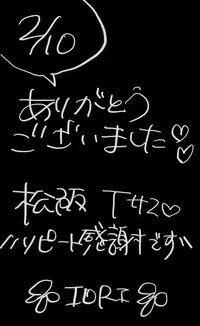 2/10
ありがとう
ございました♡♡
松阪 T42♡
\\リピート感謝です//
IORI